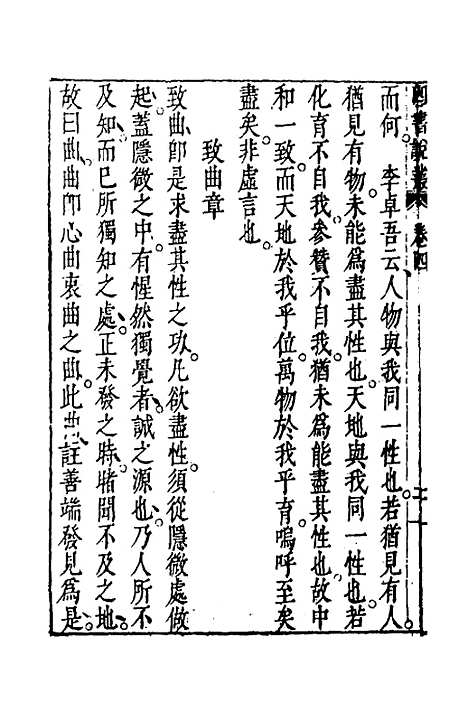 四書說叢 卷四
而何。李卓吾云、人物與我同一性也。若猶見有人。
猶見有物。未能爲盡其性也。天地與我同一性也。若
化育不自我。參贊不自我。猶未爲能盡其性也。故中
和一致。而天地於我乎位。萬物於我乎育。嗚呼至矣
盡矣。非虛言也。
致曲章
致曲、卽是求盡其性之功。凡欲盡性。須從隱微處做
起。蓋隱微之中。有惺然獨覺者、誠之源也。乃人所不
及知。而已所獨知之處。正未發之時、睹聞不及之地。
故曰曲。曲卽心曲衷曲之曲。此曲、註善端發見爲是。